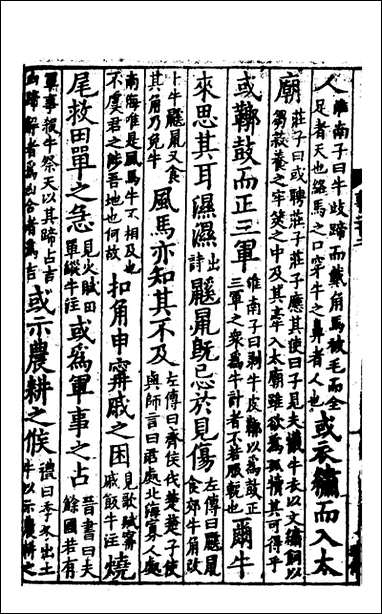 人淮南子曰牛歧蹄而戴角馬被毛而全足者天也絡馬之口穿牛之鼻者人也或衣繡而入太
廟莊子曰或聘莊子莊子應其使曰子見夫犧牛衣以文繡飼以芻菽養之牢筴之中及其牽入太廟雖欲為孤犢其可得乎
或鞹鼓而正三軍淮南子曰剥牛皮鞹以為鼓正三軍之衆為牛計者不若服軛也爾牛
來思其耳濕濕出詩鼷鼠旣忌於見傷左傳曰鼷鼠食郊牛角改
卜牛鼷鼠又食其角乃免牛風馬亦知其不及左傳曰齊侯伐楚楚子使與師言曰君處北海寡人處
南海唯是風馬牛不相及也不虞君之陟吾地也何故扣角申甯戚之困見歌賦甯戚飯牛注燒
尾救田單之急見火賦田單縱牛注或為軍事之占晉書曰夫餘國若有
軍事殺牛祭天以其蹄占吉凶蹄解者為凶合者為吉或示農耕之候禮曰季冬出土牛以示農耕之